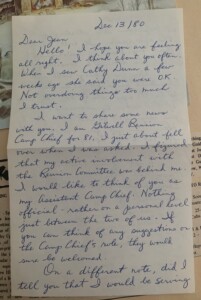 Dec 13/80
Dear Jean
Hello! I hope you are feeling
all right. I think about you often.
When I saw Cathy Dunn a few
weeks ago she said you were O.K.
Not overdoing things too much
I trust.
I want to share some news
with you. I am Gilwell Reunion
Camp Chief for '81. I just about fell
over when I was asked. I figured
that my active involvement with
the Reunion Committee was behind me.
I would like to think of you as
my Assistant Camp Chief. Nothing
official - rather on a personal level
just between the two of us. If
you can think of any suggestions on
the Camp Chief's role, they would
sure be welcomed.
On a different note, did I
tell you that I would be serving